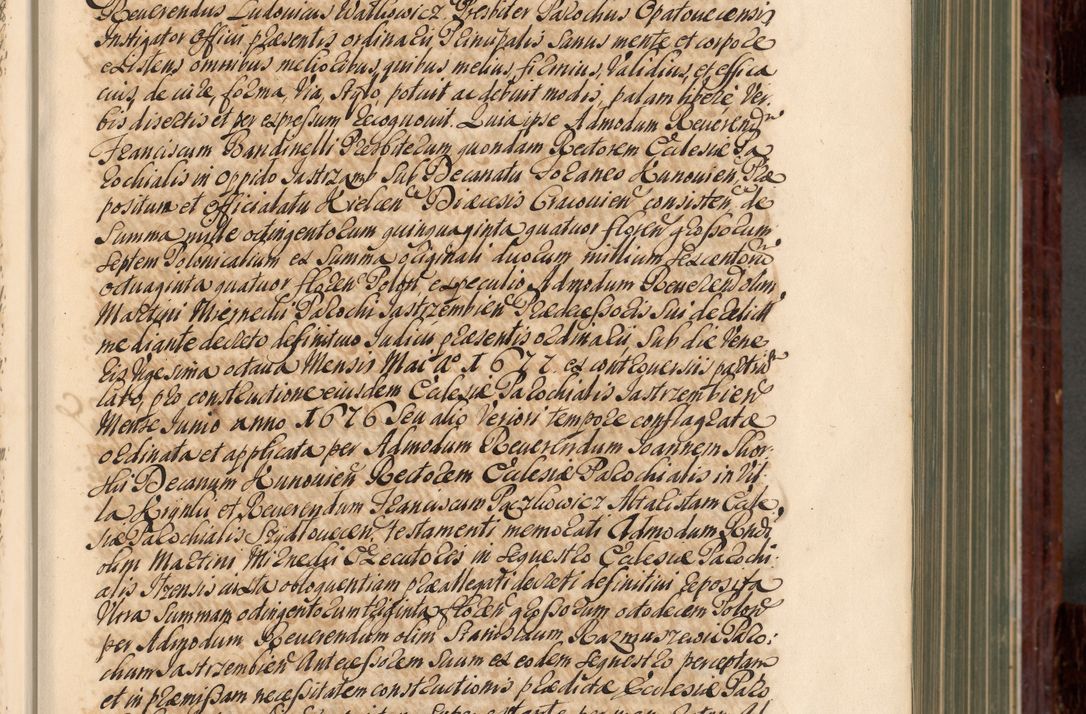 Reverendus Ludovicus Watlisowicz Presbiter Parochus Opatovecensis
Instigator Officii præsentis ordinarii Principalis sanus mente et corpore
existens omnibus melioribus, quibus melius, firmius, validius, et effica
cius, de iure, forma, via, stylo, potuit ac debuit modis, palam libere ver
bis disertis et per expressum recognovit. Quia ipse Admodum Reverendum
Franciscum Bandinelli Presbiterum quondam Rectorem Ecclesiæ Pa
rochialis in oppido Jastrzamb sub Decanatu foraneo Kunovien Præ
positum et officialatu Kielcen Diæcesis Cracovien consisten de
summa mille octingentorum quinquaginta quatuor floren grossorum
septem Polonicalium ex summa originali duorum millium sexcentorum
octuaginta quatuor floren Polon ex peculio Admodum Reverend olim
Martini Miernecki Parochi Jastrzembien Prædecessoris sui derelict
mediante decreto definitivo Judicii præsentis ordinarii sub die Vene
ris vigesima octava Mensis Maii aº 1677. ex controversiis partium
lato, pro constructione eiusdem Ecclesiæ Parochialis Jastrzembien
Mense Junio anno 1676 seu alio veriori tempore conflagratæ
ordinata et applicata per Admodum Reverendum Joannem
Decanum Kunovien Rectorem Ecclesiæ Parochialis in Vil
la Krynki et Reverendum Franciscum Paczkowicz Altaristam Eccle,
siæ Parochialis Szydlovecen, testamenti memorati Admodum Rndi
olim Martini Mirnecki Executores in sequestro Ecclesiæ Parochi
alis Itzensis iuxta obloquentiam præallegati decreti definitivi reposita
Ultra summam octingentorum triginta floren grossorum octodecem Polon
per Admodum Reverendum olim Stanislaum Parochum
Jastrzembien Antecessorem suum ex eodem sequestro perceptam
et in præmissam necessitatem constructionis prædictæ Ecclesiæ Paro